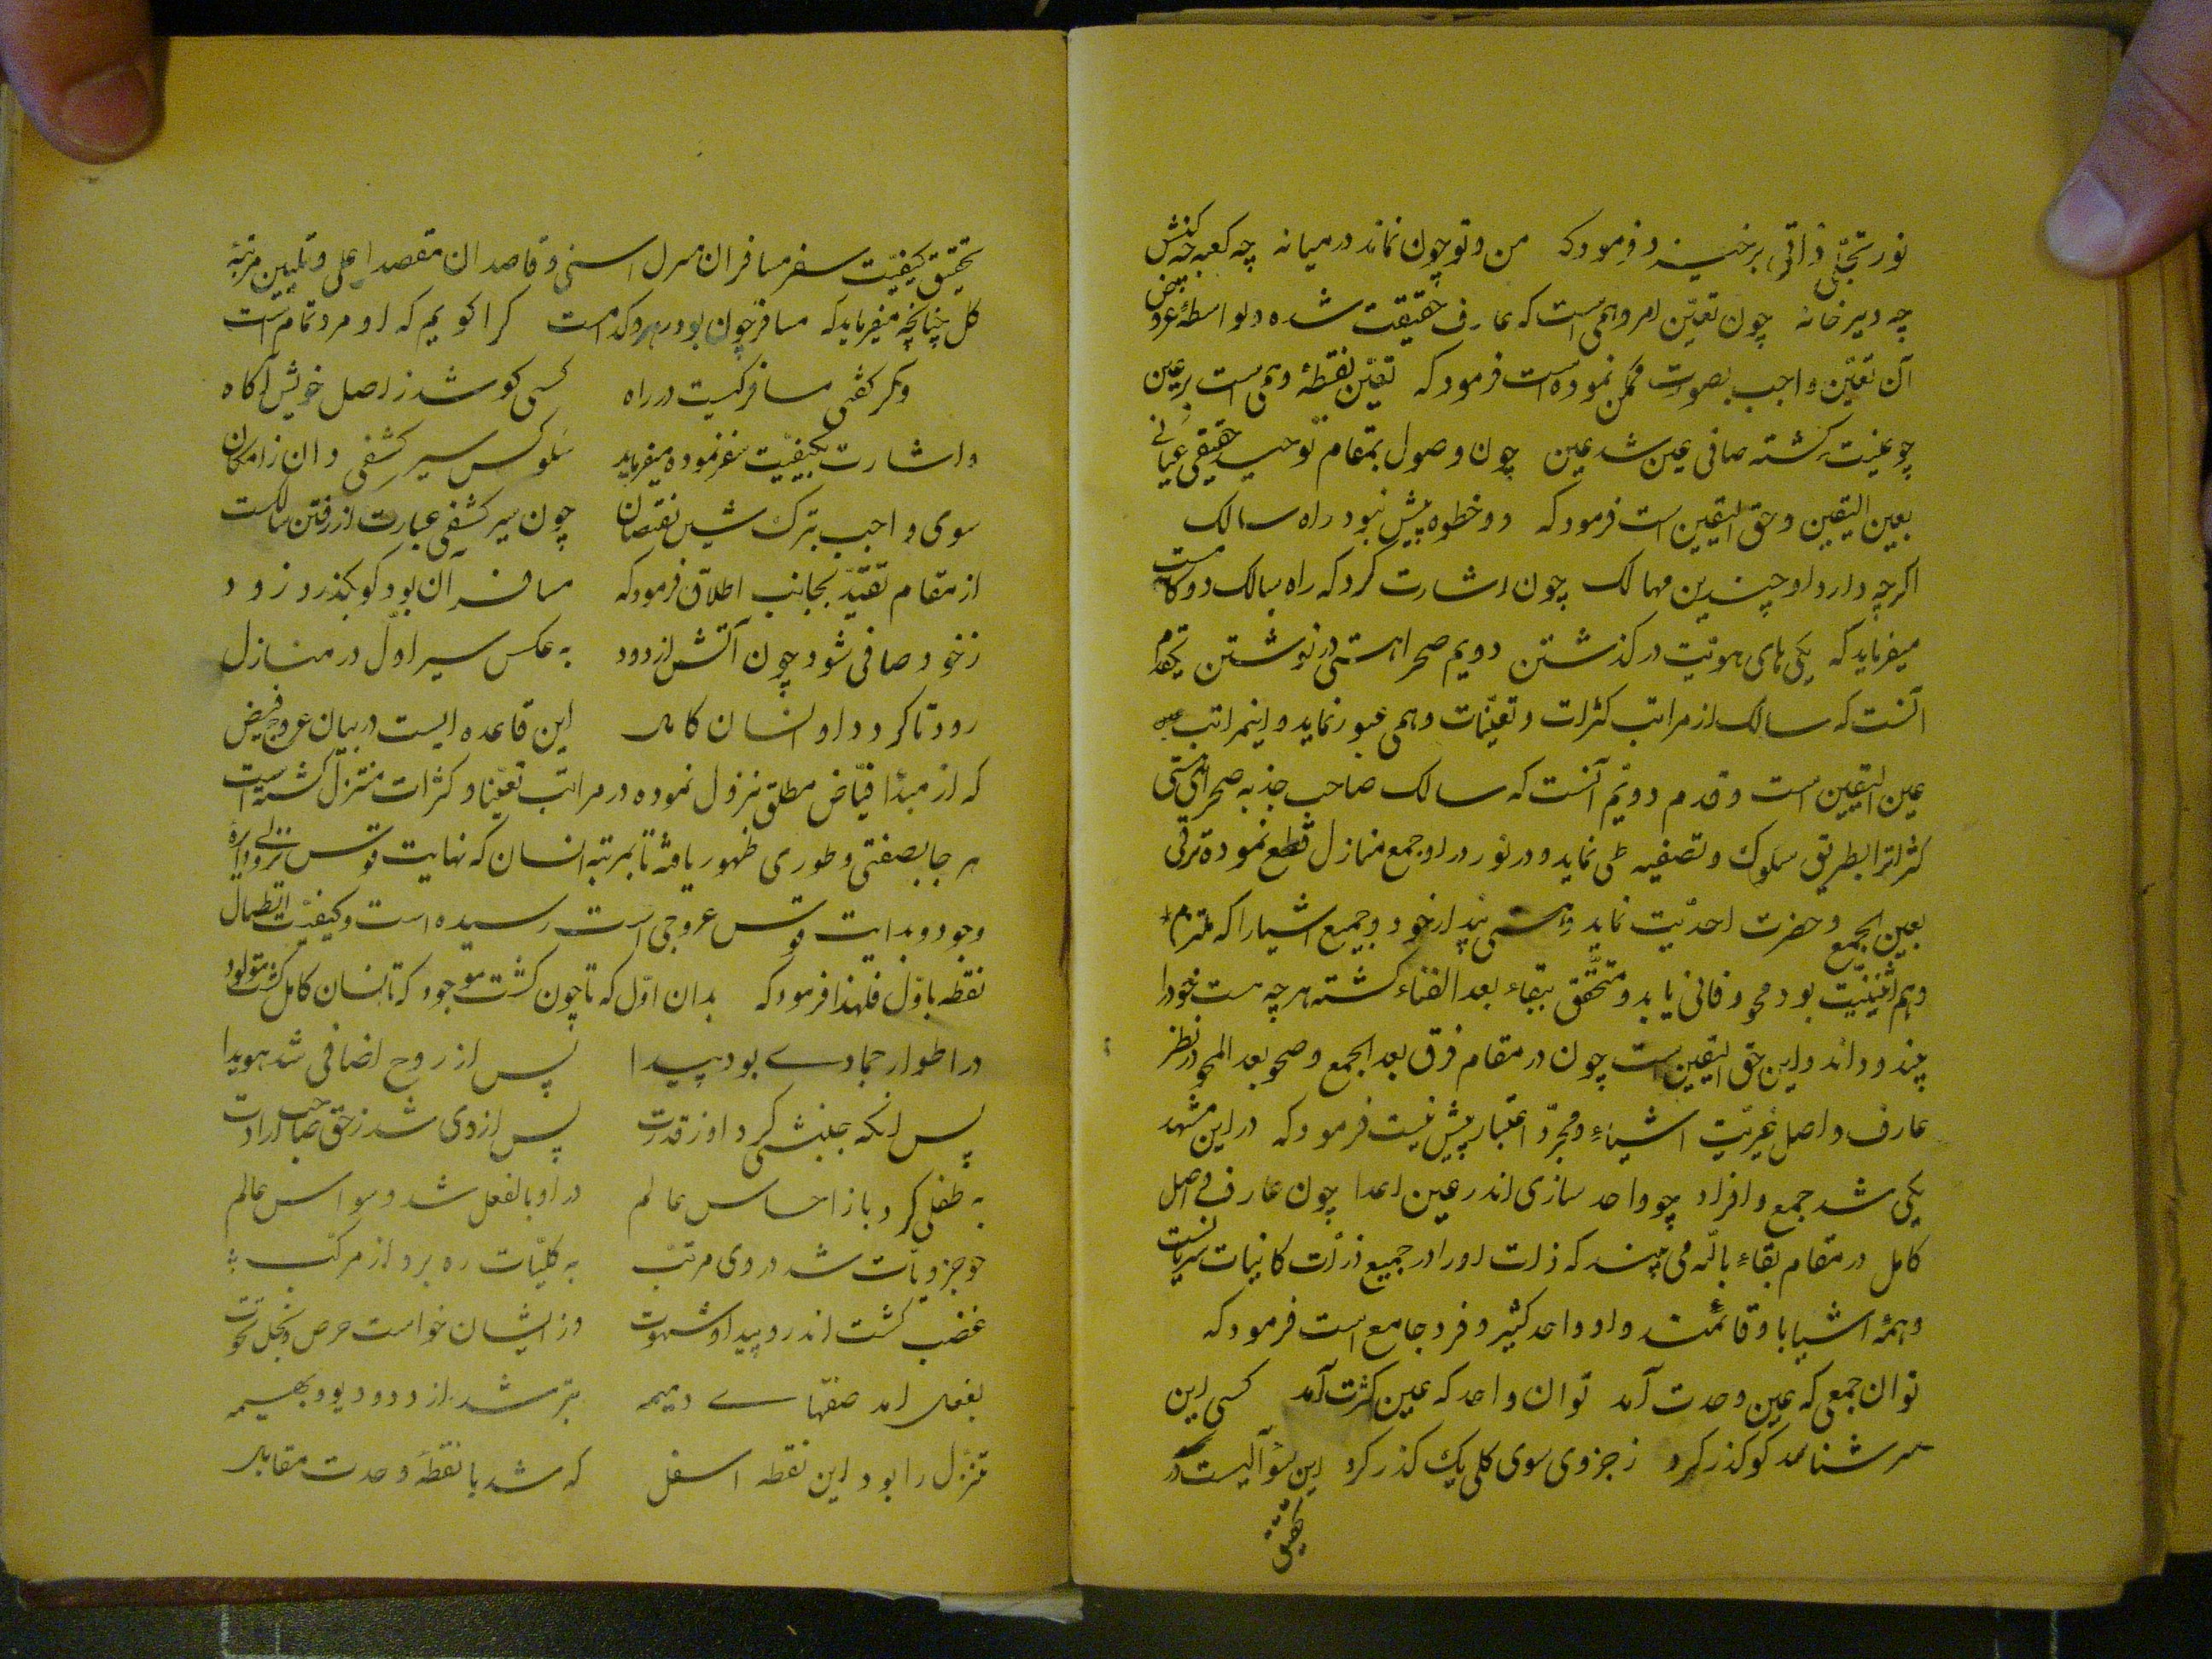 نور تجلّی ذاتی برخیزد و فرمود که من و تو چون نماند در میانه چه کعبه چه کنش
چه دیر خانه چون تعیّن امر وهمی است که عارف حقیقت شده و بواسطهٔ عروض
آن تعیّن واجب بصورت ممکن نموده است فرمود که تعیّن نقطهٔ وهمی است بر عین
چو عینت گشته صافی عین شد عین چون وصول بمقام توحید حقیقی عیانی
بعین الیقین و حق الیقین است فرمود که دو خطوه پیش نبود راه سالک
اکرچه دارد او چندین مهالک چون اشارت کرد که راه سالک دو کامست
میفرماید که یکی های هویّت در کذشتن دویم صحرا هستی در نوشتن یکقدم
آنست که سالک از مراتب کثرات و تعیّنات وهمی عبور نماید و اینمراتب
عین الیقین است و قدم دویّم آنست که سالک صاحب جذبه صحرای هستی
کثراترا بطریق سلوک و تصفیه طی نماید و در نور در او جمع منازل قطع نموده ترقی
بعین الجمع و حضرت احدیّت نماید و هستی پندار خود و جمیع اشیا را که ملتزم
وهم اثنینیّت بود محو و فانی یابد و متحقّق ببقاء بعد الفناء کشته هر چه هست خود را
بیند و داند و این حق الیقین است چون در مقام فرق بعد الجمع و صحو بعد المحو در نظر
عارف واصل غیریّت اشیاء و مجرّد اعتبار پیش نیست فرمود که در این مشهد
یکی شد جمع و افراد چو واحد سازی اندر عین اعدا چون عارف واصل
کامل در مقام بقاء بالله می بیند که ذات او را در جمیع ذرّات کاینات سریانست
و همهٔ اشیا با و قائمند و او واحد کثیر و فرد جامع است فرمود که
تو ان جمعی که عین وحدت آمد تو ان واحد که عین کثرت آمد کسی این
سر شناسد کو کذر کرد ز جزوی سوی کلی یک کذر کرد این سؤالیست در
تحقیق
تحقیق کیفیّت سفر مسافران منزل اسنی و قاصدان مقصد اعلی و تبیین مرتبهٔ
کل چنانچه میفرماید که مسافر چون بود رهرو کدامست کرا کویم که او مرد تمام است
دکر کفتی مسافر کیست در راه کسی کو شد ز اصل خویش آکاه
و اشارت بکیفیّت سفر نموده میفرماید سلوکش سیر کشفی دان ز امکان
سوی واجب بترک شین نقصان چون سیر کشفی عبارت از رفتن سالکست
از مقام تقیّد بجانب اطلاق فرمود که مسافر آن بود کو بکذرد زود
ز خود صافی شود چون آتش از دود به عکس سیر اوّل در منازل
رود تا کردد او انسان کامل این قاعده ایست در بیان عروج فیض
که از مبدأ فیّاض مطلق نزول نموده در مراتب تعیّنا و کثرات متنزل کشته است
هر جا بصفتی و طوری ظهور یافته تا بمرتبه انسان که نهایت قوس نزولی دایرهٔ
وجود و بدایت قوس عروجی است رسیده است و کیفیّت اتصال
نقطه باوّل فلهذا فرمود که بدان اوّل که تا چون کشت موجود که تا انسان کامل کشت مولود
در اطوار جمادی بود پیدا پس از روح اضافی شد هویدا
پس آنکه جنبشی کرد او ز قدرت پس از وی شد ز حق صاحب ارادت
به طفلی کرد باز احساس عالم در او بالفعل شد وسواس عالم
چو جزویات شد در وی مرتّب به کلیّات ره برد از مرکّب
غضب کشت اندر و پیدا و شهوت وز ایشان خواست حرص و بخل نخوت
بفعل امد صفتهای ذمیمه بتر شد از دد و دیو و بهیمه
تنزّل را بود این نقطه اسفل که شد با نقطهٔ وحدت مقابل